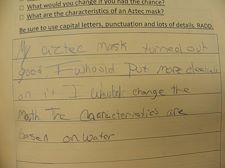 □ What would you change if you had the chance?
□ What are the characteristics of an Aztec mask?
Be sure to use capital letters, punctuation and lots of details. RADD.
My aztec mask turned out
good I whould Put more
on it I whould change the
Math The characteristics are
on water